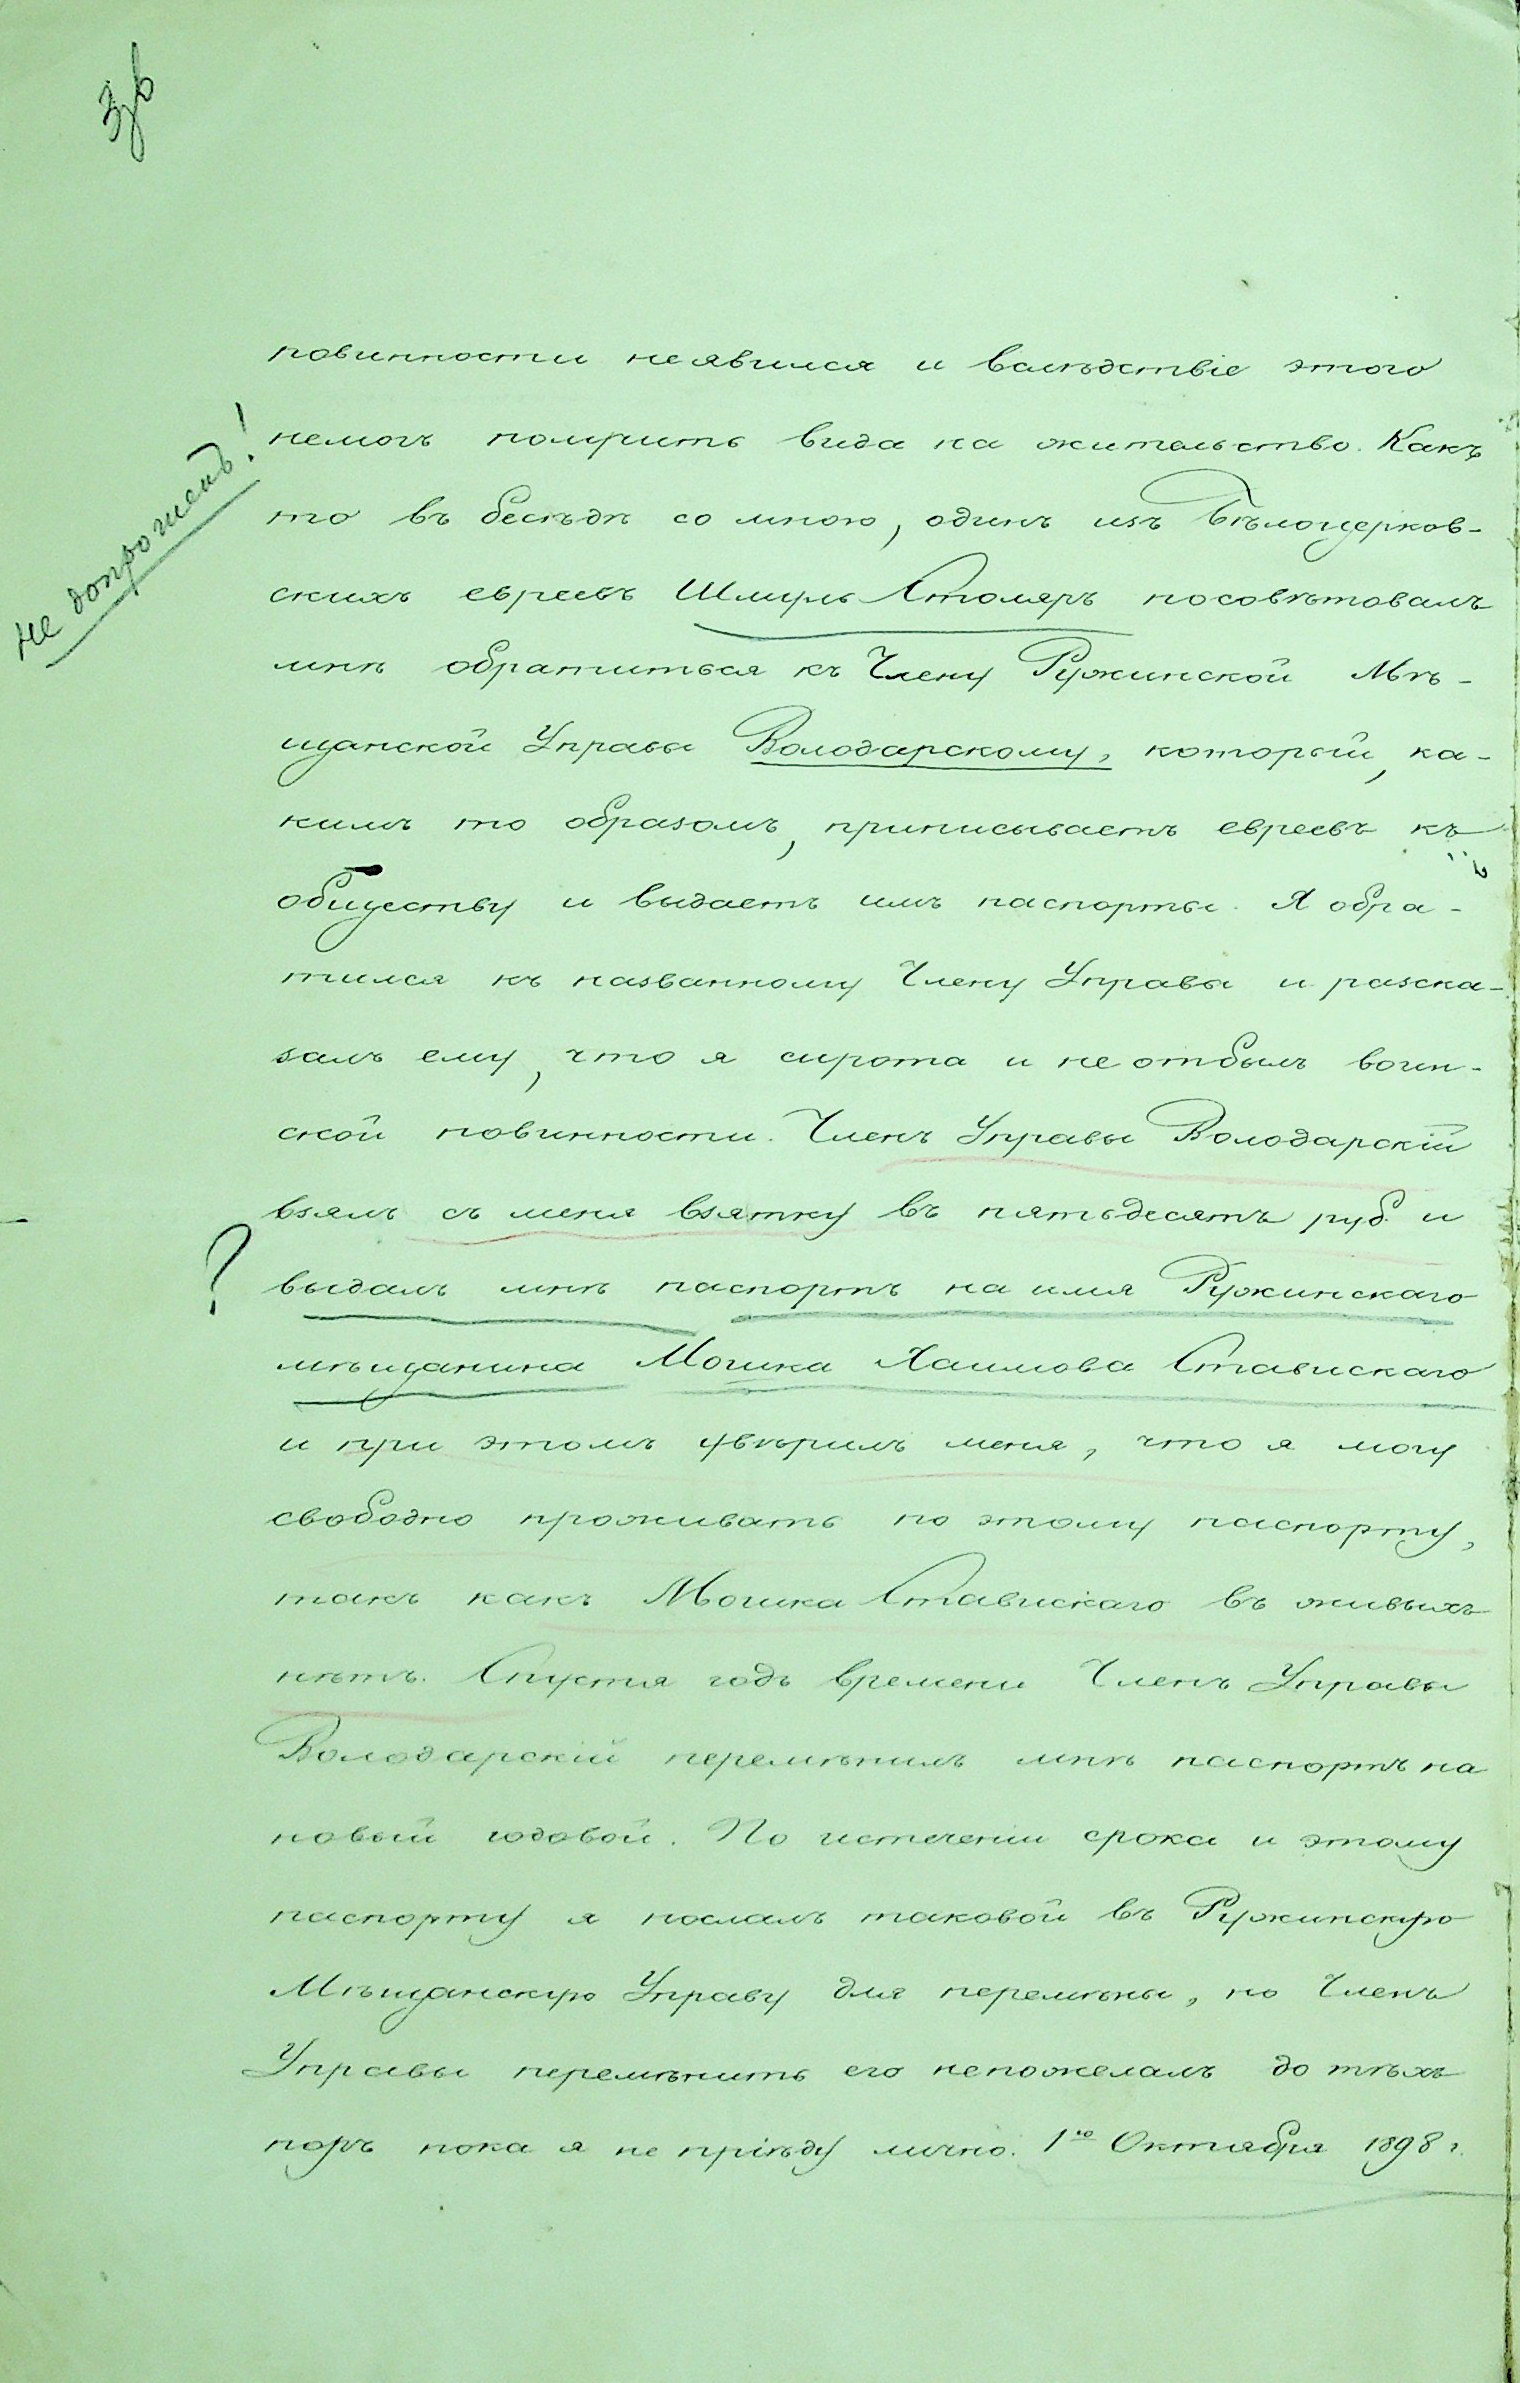 повинности неявился и вслѣдствіе этого
немогъ получить вида на жительство. Какъ
то въ бесѣдѣ со мною, одинъ изъ Бѣлоцерков-
скихъ евреевъ Шмуль Столяръ посовѣтовалъ
мнѣ обратиться къ Члену Ружинской Мѣ-
щанской Управы Володарскому, который, ка-
кимъ то образомъ, приписываетъ евреевъ къ
обществу и выдаетъ имъ паспорты. Я обра-
тился къ названному Члену Управы и разска-
залъ ему, что я сирота и не отбылъ воин-
ской повинности. Членъ Управы Володарскій
взялъ съ меня взятку въ пятьдесятъ руб. и
выдалъ мнѣ паспортъ на имя Ружинскаго
мѣщанина Мошка Хаимова Стависскаго
и при этомъ увѣрилъ меня, что я могу
свободно проживать по этому паспорту,
такъ какъ Мошка Ставискаго въ живыхъ
нѣтъ. Спустя годъ времени Членъ Управы
Володарскій перемѣнилъ мнѣ паспортъ на
новый годовой. По истеченіи срока и этому
паспорту я послалъ таковой въ Ружинскую
Мѣщанскую Управу для перемѣны, но Членъ
Управы перемѣнить его непожелалъ до тѣхъ
поръ пока я не пріѣду лично. 1го Октября 1898 г.
не допрошенъ!
?